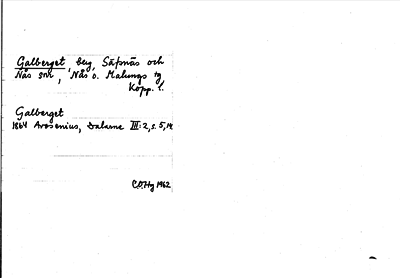 Galberget, berg, Säfsnäs och
Nås snr, Nås o. Malungs tg
Kopp. l.
Galberget
1864 Arosenius, Dalarne III:2, s. 5, 14
C.O.Hg 1962